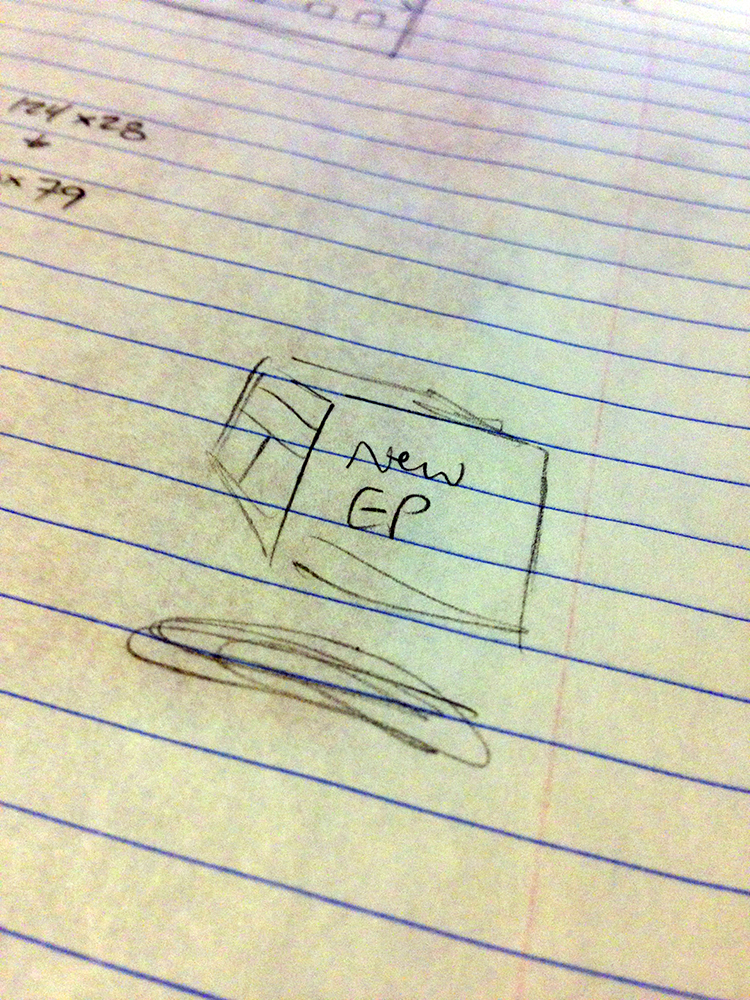 124 x 28
x 79
New
EP